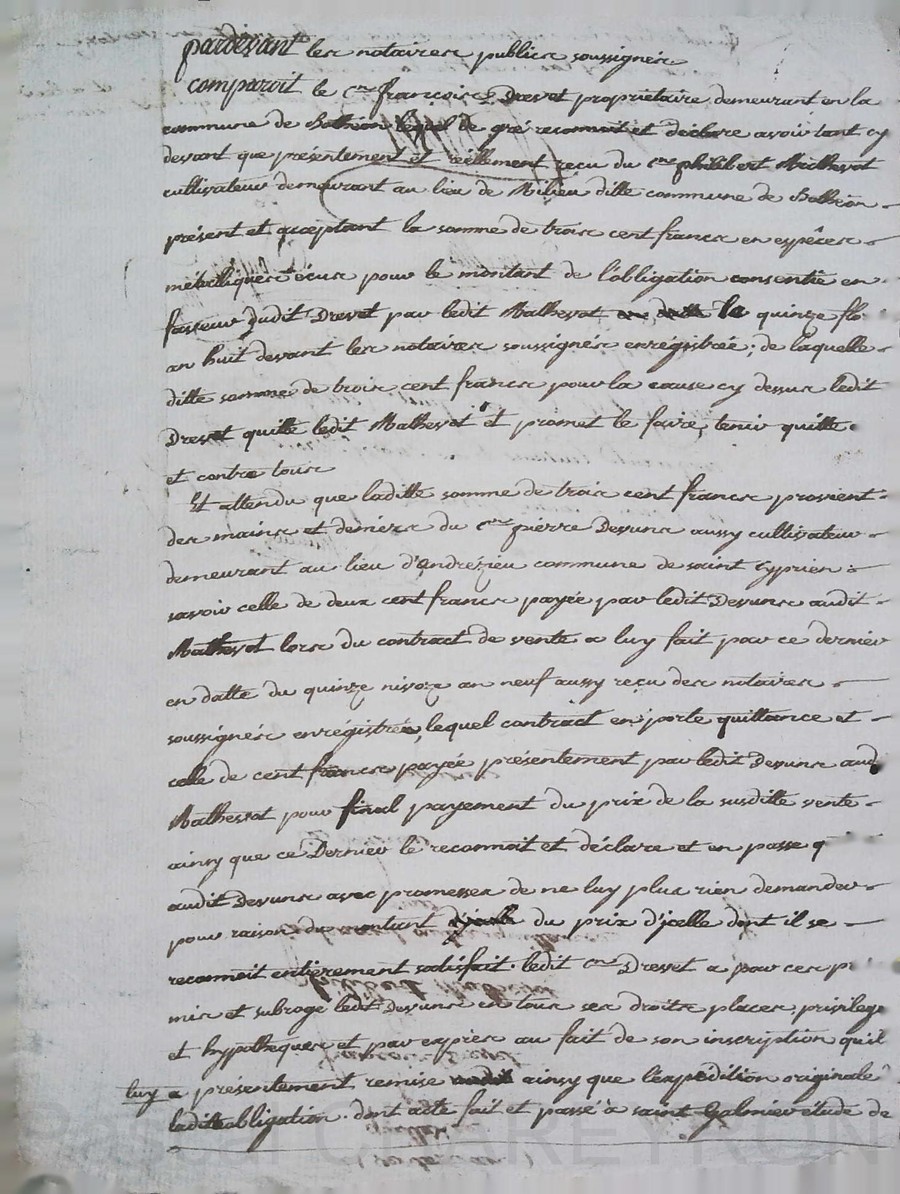 pardevant les notaires publics soussignés
comparoit le cen françois Drevet propriétaire demeurant en la
commune de Bothéon lequel de gré reconnoit et déclare avoir tant cy
devant que présentement et réellement reçu du cen philibert Mathevot
cultivateur demeurant au lieu de Milieu ditte commune de Bothéon
présent et acceptant la somme de trois cent francs en espèces
métalliques écus pour le montant de l'obligation consentie en
faveur dudit Drevet par ledit Mathevot le quinze flo
an huit devant les notaires soussignés enregistrée; de laquelle
ditte somme de trois cent francs pour la cause cy dessus ledit
Drevet quitte ledit Mathevot et promet le faire, tenir quitte
et contre tous
Et attendu que laditte somme de trois cent francs provient
des mains et deniers du cen pierre Devuns aussy cultivateur
demeurant au lieu d'andrézieu commune de saint Cyprien
savoir celle de deux cent francs payée par ledit Devuns audit
Mathevot lors du contract de vente a luy fait par ce dernier
en datte du quinze nivoze an neuf aussy reçu des notaires
soussignés enrégistrée, lequel contract en porte quittance et
celle de cent francs payée présentement par ledit Devuns aud
Mathevot pour final payement du prix de la susditte vente
ainsy que ce Dernier le reconnoit et déclare et en passe q
audit Devuns avec promesses de ne luy plus rien demander
pour raison du montant du prix d'jcelle dont il se
reconnoit entièrement satisfait. ledit cen Drevet a par ces p
mis et subrogé ledit Devuns en tous ses droits places, privilege
et hypotheques et par exprès au fait de son inscription qu'il
luy a présentement remise ainsy que l'expédition originale
laditte obligation. dont acte fait et passé à saint Galmier étude de